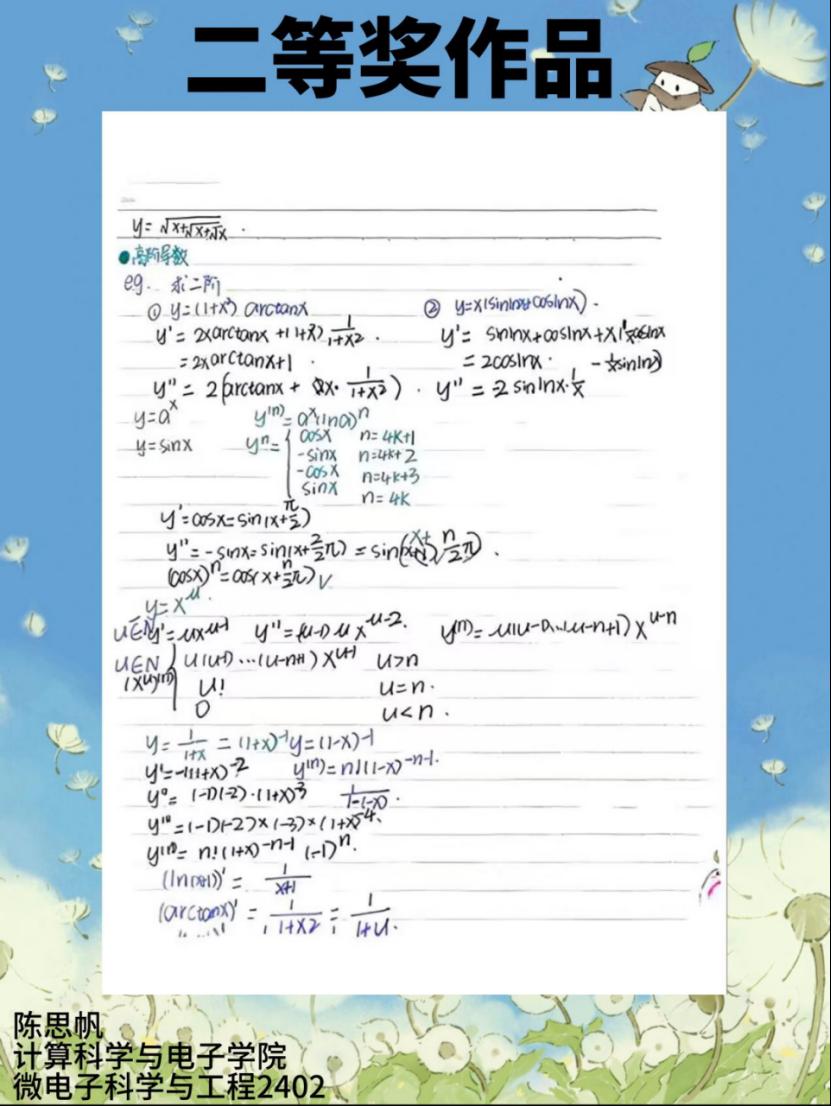 二等奖作品
y = √x+√x+√x .
●高阶导数
e.g. 求二阶
① y=(1+x²) arctanx ② y=x(sinlnx+coslnx).
y' = 2xarctanx+(1+x²) 1/1+x² . y' = sinlnx+coslnx+x(1/x coslnx
=2xarctanx+1 . = 2coslnx. - 1/x sinlnx)
y'' = 2(arctanx + x· 1/1+x²) . y'' = -2 sinlnx·1/x
y=aˣ y⁽ⁿ⁾= aˣ(lna)ⁿ
y=sinx yⁿ= { cosx n=4k+1
-sinx n=4k+2
-cosx n=4k+3
sinx n=4k
y'=cosx=sin(x+π/2)
y''=-sinx=sin(x+2/2π) = sin(x+ n/2π) .
(cosx)ⁿ=cos(x+n/2π)√
y=xᵘ
u∈N y'=uxᵘ⁻¹ y''=(u-1)u xᵘ⁻². y⁽ⁿ⁾= u(u-1)...(u-n+1) xᵘ⁻ⁿ
u∈N { u(u-1)...(u-n+1) xᵘ⁻¹ u>n
(xᵘ)⁽ⁿ⁾ u! u=n.
0 u<n .
y= 1/1+x = (1+x)⁻¹ y=(1-x)⁻¹
y'=-1(1+x)⁻² y⁽ⁿ⁾=n!(1-x)⁻ⁿ⁻¹.
y''= (-1)(-2)·(1+x)⁻³ 1/1-(-x) .
y'''=(-1)(-2)×(-3)×(1+x)⁻⁴.
y⁽ⁿ⁾= n!(1+x)⁻ⁿ⁻¹ (-1)ⁿ.
(ln(x+1))' = 1/x+1
(arctanx)' = 1/1+x2 = 1/1+u.
陈思帆
计算科学与电子学院
微电子科学与工程2402